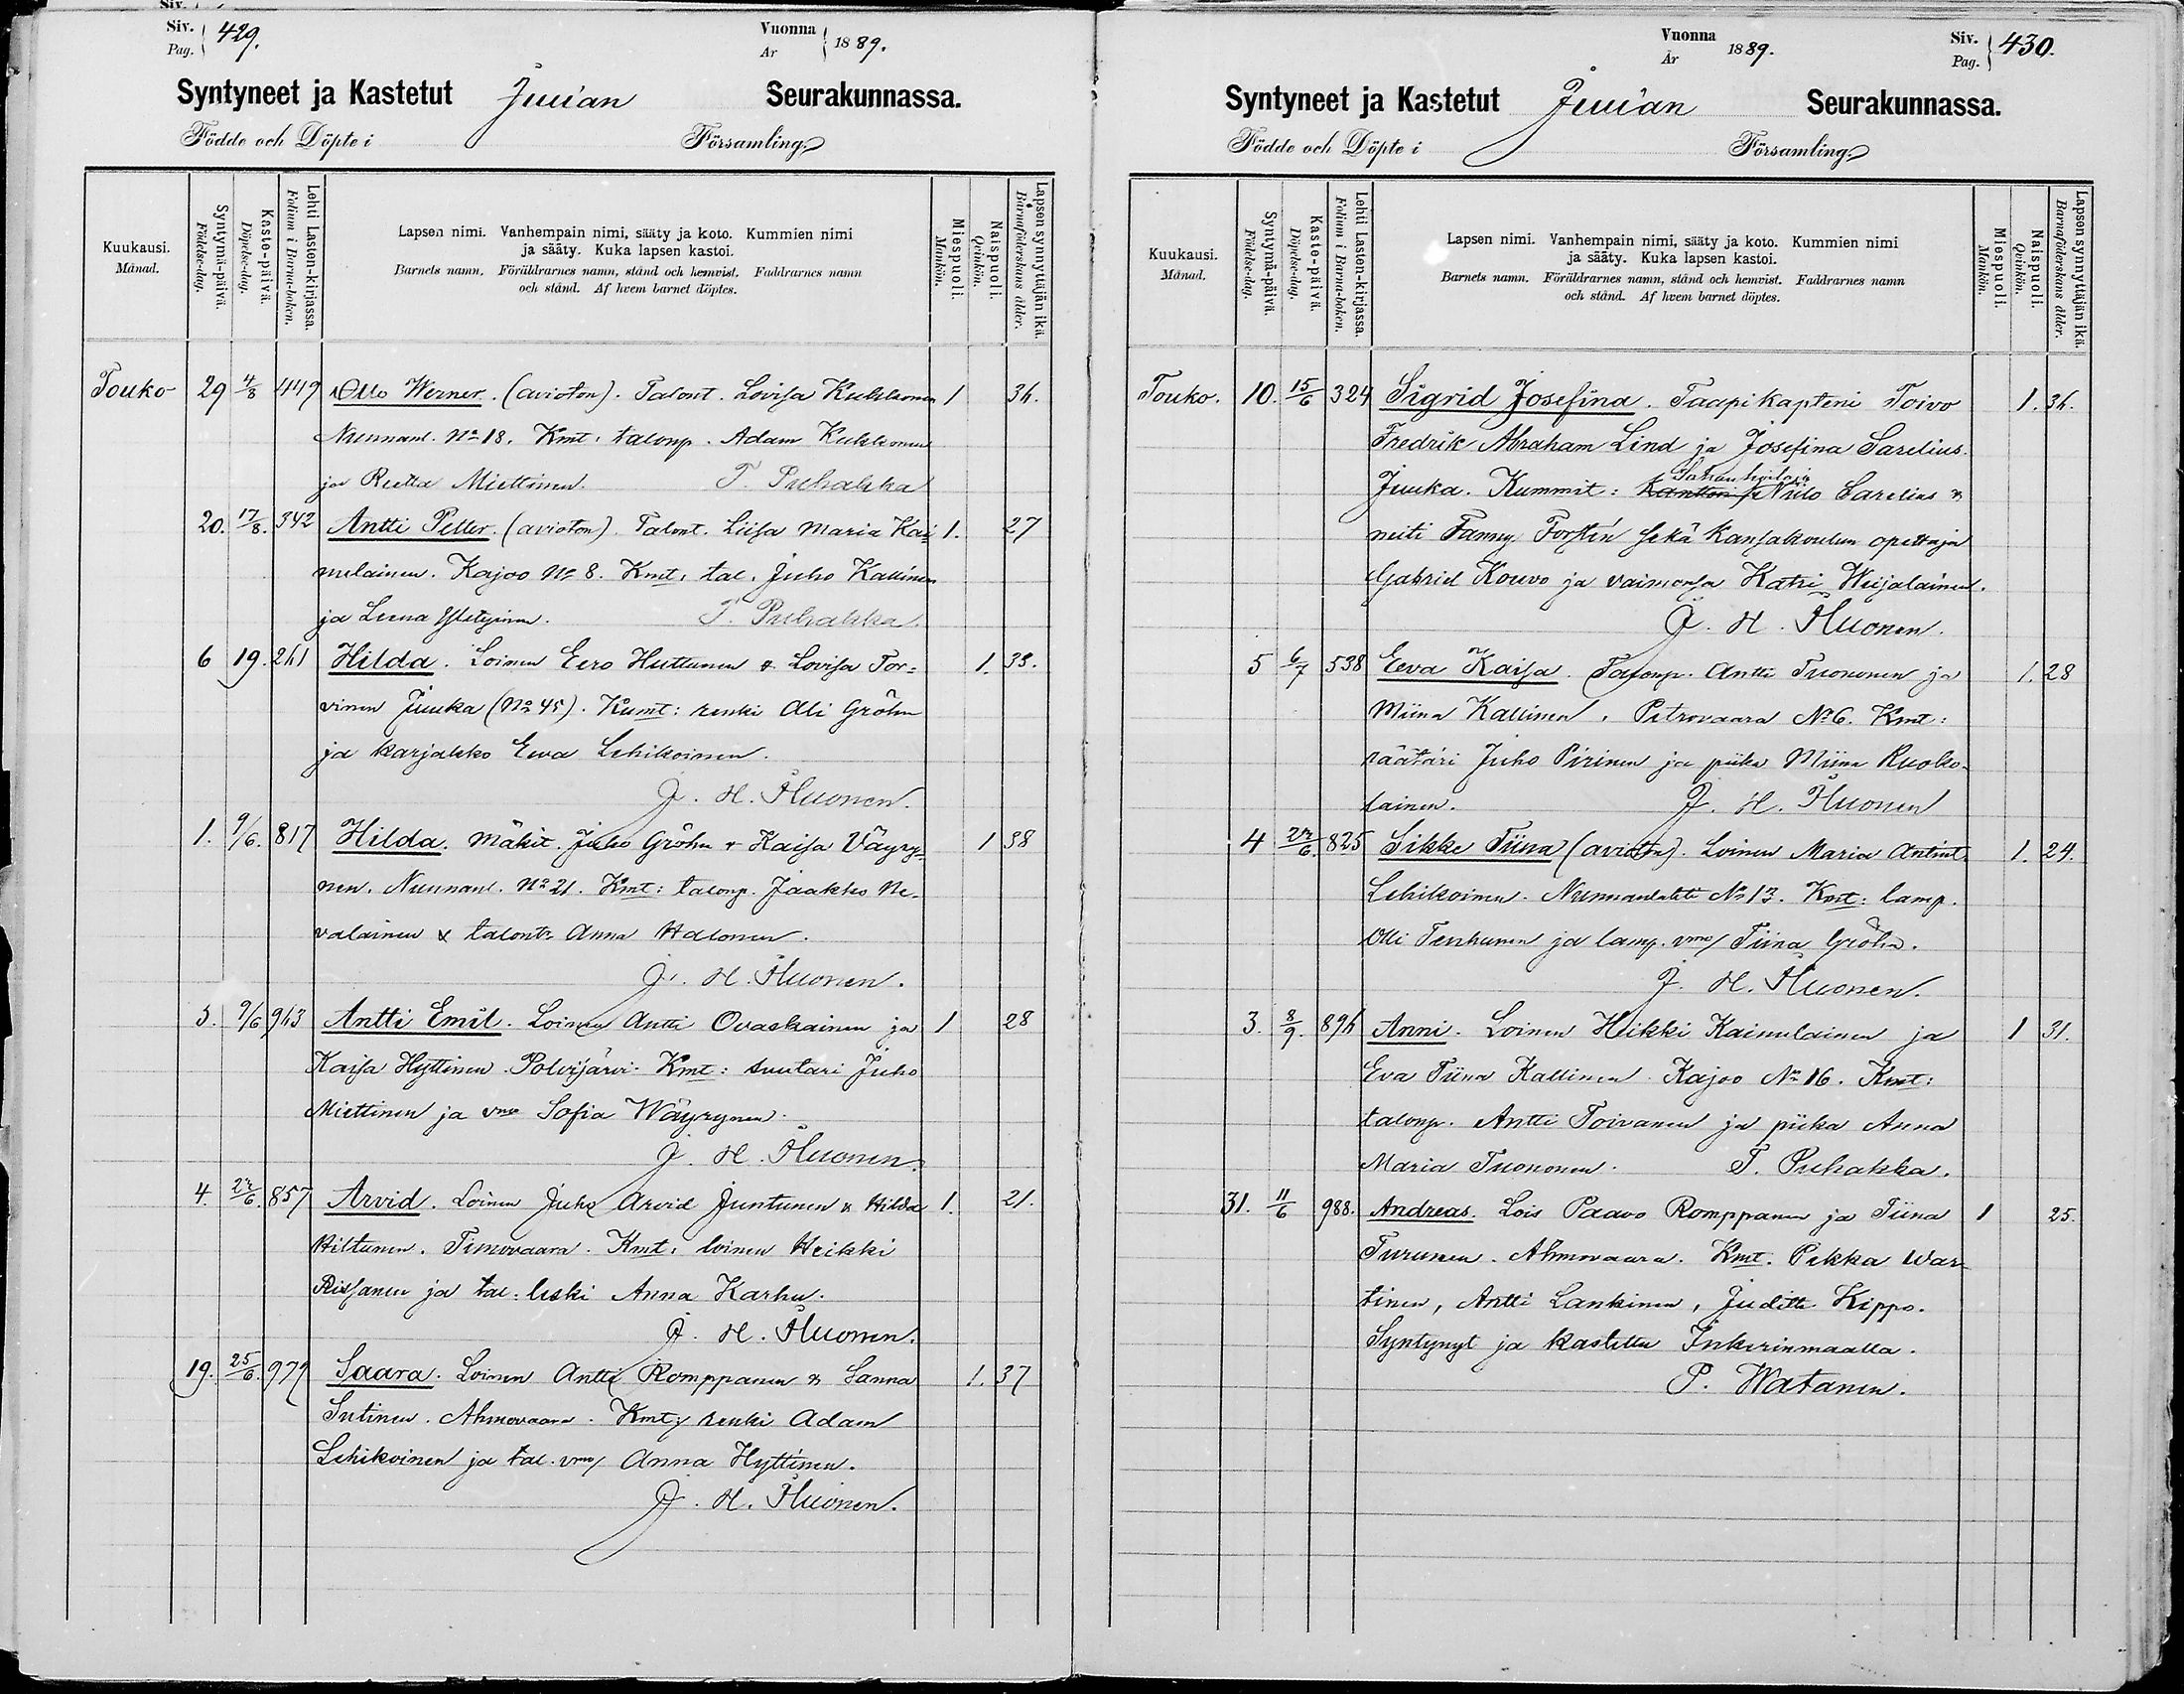 Siv.
Pag. 429.
Vuonna
Ar 1889.
Syntyneet ja Kastetut Juuan Seurakunnassa.
Födde och Döpte i Församling.
Kuukausi.
Månad.
Syntymä-päivä.
Födelse-dag.
Kaste-päivä.
Döpelse-dag.
Lehti Lasten-kirjassa.
Folium i Barna-boken.
Lapsen nimi. Vanhempain nimi, sääty ja koto. Kummien nimi
ja sääty. Kuka lapsen kastoi.
Barnets namn. Föräldrarnes namn, stånd och hemvist. Faddrarnes namn
och stånd. Af hvem barnet döptes.
Miespuoli.
Mankön.
Naispuoli.
Qvinkön.
Lapsen synnyttäjän ikä.
Barnaföderskans ålder.
Touko 29 4/8 449 Otto Werner. (avioton). Talont. Lovisa Kukkonen 1 36.
Nunnanl. No 18. Kmt: talonp. Adam Kukkonen
ja Reetta Miettinen. T. Puhakka
20. 17/8. 342 Antti Petter. (avioton). Talont. Liisa Maria Kai= 1. 27
nulainen. Kajoo No 8. Kmt: tal. Juho Kallinen
ja Leena T. Puhakka.
6 19. 261 Hilda. Loinen Eero Huttunen & Lovisa Tor= 1. 33.
vinen Juuka (No 45). Kumt: renki Oli Gröhn
ja karjakko Eeva Lehikoinen.
J. H. Huonen.
1. 9/6. 817 Hilda. Mäkit. Juho Gröhn & Kaisa Väyry= 1 38
nen. Nunnanl. No 21. Kmt: talonp. Jaakko Ne-
valainen & talontr. Anna Halonen.
J. H. Huonen.
5. 9/6 963 Antti Emil. Loinen Antti Ovaskainen ja 1 28
Kaisa Hyttinen. Polvijärvi. Kmt: suutari Juho
Miettinen ja vmo Sofia Wäyrynen.
J. H. Huonen.
4. 22/6. 857 Arvid. Loinen Juho Arvid Juntunen & Hilda 1. 21.
Hiltunen. Timovaara. Kmt: loinen Heikki
Riissanen ja tal. leski Anna Karhu.
J. H. Huonen.
19. 25/6. 979 Saara. Loinen Antti Romppanen & Sanna 1. 37
Sutinen. Ahmovaara. Kmt: renki Adam
Lehikoinen ja tal. vmo Anna Hyttinen.
J. H. Huonen.
Vuonna
År 1889.
Siv.
Pag. 430.
Syntyneet ja Kastetut Juuan Seurakunnassa.
Födde och Döpte i Församling.
Kuukausi.
Månad.
Syntymä-päivä.
Födelse-dag.
Kaste-päivä.
Döpelse-dag.
Lehti Lasten-kirjassa.
Folium i Barna-boken.
Lapsen nimi. Vanhempain nimi, sääty ja koto. Kummien nimi
ja sääty. Kuka lapsen kastoi.
Barnets namn. Föräldrarnes namn, stånd och hemvist. Faddrarnes namn
och stånd. Af hvem barnet döptes.
Miespuoli.
Mankön.
Naispuoli.
Qvinkön.
Lapsen synnyttäjän ikä.
Barnaföderskans ålder.
Touko. 10. 15/6 324 Sigrid Josefina. Taapikapteni Toivo 1. 36.
Fredrik Abraham Lind ja Josefina Sarelius.
Juuka. Kummit: Niilo Sarelius &
neiti Fanny Forstén sekä kansakoulun opettaja
Gabriel Kouvo ja vaimonsa Katri Weijalainen.
J. H. Huonen.
5 6/7 538 Eeva Kaisa. Talonp. Antti Tuononen ja 1. 28
Miina Kallinen. Petrovaara No 6. Kmt:
räätäri Juho Pirinen ja piika Miina Ruoko-
lainen. J. H. Huonen
4 22/6. 825 Sikke Tiina (avioton). Loinen Maria Antint. 1. 24.
Lehikoinen. Nunnanlahti No 13. Kmt: lamp.
Olli Tenhunen ja lamp. vmo Tiina Gröhn.
J. H. Huonen.
3. 8/9. 896 Anni. Loinen Heikki Kainulainen ja 1 31.
Eva Tiina Kallinen. Kajoo No 16. Kmt:
talonp. Antti Toivanen ja piika Anna
Maria Tuononen. T. Puhakka.
31. 11/6 988. Andreas. Lois Paavo Romppanen ja Tiina 1 25.
Turunen. Ahmovaara. Kmt. Pekka War-
tinen, Antti Lankinen, Juditta Kippo.
Syntynyt ja kastettu Inkerinmaalla.
P. Watanen.